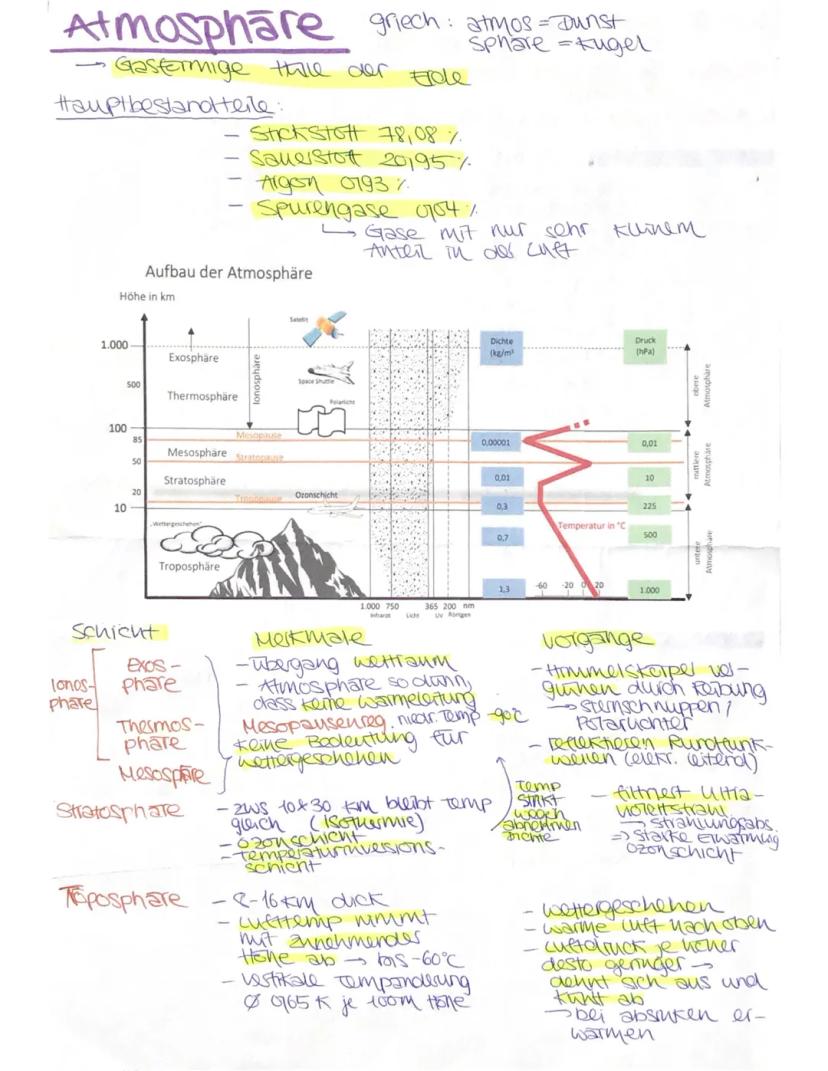 Atmosphäre
griech: atmos = Dunst
sphäre = Kugel
→ Gasförmige Hülle der Erde
Hauptbestandteile:
- Stickstoff 78,08 %
- Sauerstoff 20,95 %
- Argon 0,93 %
- Spurengase 0,04 %
↳ Gase mit nur sehr kleinem
Anteil in der Luft
Aufbau der Atmosphäre
Höhe in km
1.000
500
100
85
50
20
10
Exosphäre
Thermosphäre
Ionosphäre
Mesopause
Mesosphäre
Stratopause
Stratosphäre
Tropopause
Ozonschicht
„Wettergeschehen"
Troposphäre
Satellit
Space Shuttle
Polarlicht
1.000 750 365 200 nm
Infrarot Licht UV Röntgen
Dichte
(kg/m³
0,00001
0,01
0,3
0,7
1,3
Temperatur in °C
-60 -20 0 20
Druck
(hPa)
0,01
10
225
500
1.000
obere
Atmosphäre
mittlere
Atmosphäre
untere
Atmosphäre
Schicht
Merkmale
Vorgänge
Ionos-
phäre
Exos-
phäre
Thermos-
phäre
Mesospäre
- Übergang Weltraum
- Atmosphäre so dünn,
dass keine Wärmeleitung
Mesopausenreg. niedr. Temp -90°C
keine Bedeutung für
Wettergeschehen
- Himmelskörper ver-
glühen durch Reibung
→ Sternschnuppen /
Polarlichter
- reflektieren Rundfunk-
wellen (elekr. leitend)
Stratosphäre
- zws 10 & 30 km bleibt Temp
gleich (Isothermie)
- Ozonschicht
- Temperaturinversions-
schicht
Temp
sinkt
wegen
abnehmen
Dichte
- filtriert Ultra-
violettstrahl
→ Strahlungsabs.
⇒ starke Erwärmung
Ozonschicht
Troposphäre
- 8-16 km dick
- Lufttemp nimmt
mit zunehmender
Höhe ab → bis -60°C
- vertikale Tempänderung
Ø 0,65 K je 100m Höhe
- Wettergeschehen
- warme Luft nach oben
- Luftdruck je höher
desto geringer →
dehnt sich aus und
kühlt ab
→ bei absinken er-
wärmen